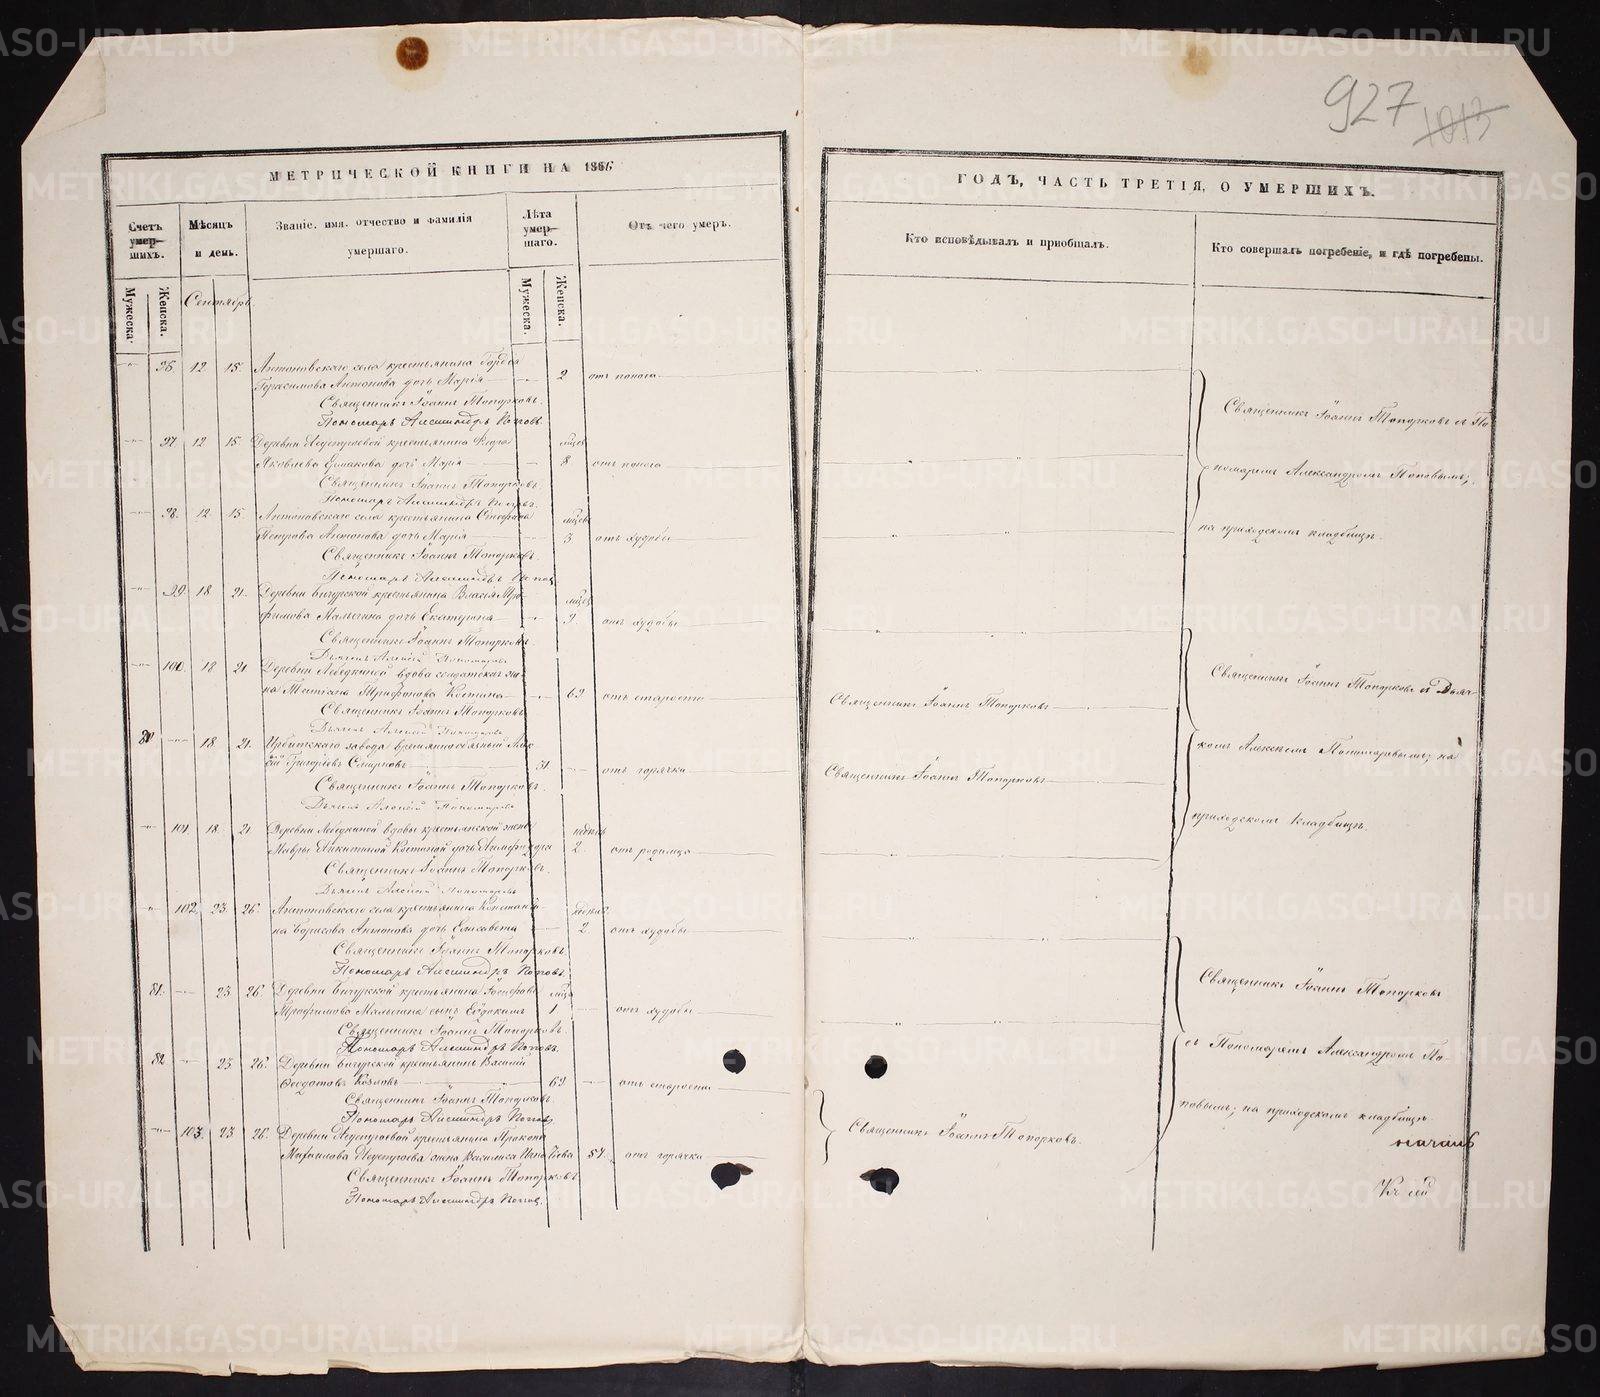 927
1013
МЕТРИЧЕСКОЙ КНИГИ НА 1866
ГОДЪ, ЧАСТЬ ТРЕТІЯ, О УМЕРШИХЪ.
Счетъ умер-шихъ.
Мѣсяцъ и день.
Званіе, имя, отчество и фамилія умершаго.
Лѣта умер-шаго.
Отъ чего умеръ.
Кто исповѣдывалъ и пріобщалъ.
Кто совершалъ погребеніе, и гдѣ погребены.
Мужеска.
Женска.
Мужеска.
Женска.
Сентябрь.
96. 12 15. Антоновскаго села крестьянина Гордея
Герасимова Антонова дочь Марія 2 отъ поноса
Священникъ Іоаннъ Топорковъ.
Пономарь Александръ Поповъ.
97. 12 15. Деревни крестьянина
Яковлева Ермакова дочь Марія 8 отъ поноса
Священникъ Іоаннъ Топорковъ
Пономарь Александръ Поповъ.
98. 12 15. Антоновскаго села крестьянина Стефана
Петрова Антонова дочь Марія 3 отъ худобы
Священникъ Іоаннъ Топорковъ.
Пономарь Александръ Поповъ
Священникъ Іоаннъ Топорковъ съ По-
номаремъ Александромъ Поповымъ;
на приходскомъ кладбищѣ.
99. 18 21. Деревни Бичурской крестьянина Власія Тро-
фимова Малыгина дочь Екатерина 9 отъ худобы
Священникъ Іоаннъ Топорковъ.
Дьячекъ Алексій Пономаревъ
100. 18 21. Деревни Лебедкиной вдова солдатская же-
на Трифонова Костина 69 отъ старости
Священникъ Іоаннъ Топорковъ
Священникъ Іоаннъ Топорковъ
Дьячекъ Алексій Пономаревъ
80 18 21. Ирбитскаго завода временнообязанный Алек-
сій Григорьевъ Смирновъ 51. отъ горячки
Священникъ Іоаннъ Топорковъ
Священникъ Іоаннъ Топорковъ.
Дьячекъ Алексій Пономаревъ
101. 18. 21. Деревни Лебедкиной вдовы крестьянской жены недѣль
Мавры Никитиной Костиной дочь 2. отъ родимца
Священникъ Іоаннъ Топорковъ.
Дьячекъ Алексій Пономаревъ
Священникъ Іоаннъ Топорковъ съ Дьяч-
комъ Алексѣемъ Пономаревымъ; на
приходскомъ кладбищѣ.
102. 23. 26. Антоновскаго села крестьянина Константи- недѣль
на Борисова Антонова дочь Елисавета 2. отъ худобы
Священникъ Іоаннъ Топорковъ.
Пономарь Александръ Поповъ.
81. 23. 26. Деревни Бичурской крестьянина
Трофимова Малыгина сынъ Евдокимъ 1 отъ худобы
Священникъ Іоаннъ Топорковъ.
Пономарь Александръ Поповъ.
82 23 26. Деревни Бичурской крестьянинъ Василій
Ѳеодотовъ Козловъ 69 отъ старости
Священникъ Іоаннъ Топорковъ.
Пономарь Александръ Поповъ
103. 23 26. Деревни крестьянина Прокопія
Михайлова жена Василиса 57. отъ горячки
Священникъ Іоаннъ Топорковъ.
Священникъ Іоаннъ Топорковъ
Пономарь Александръ Поповъ.
Священникъ Іоаннъ Топорковъ
съ Пономаремъ Александромъ По-
повымъ; на приходскомъ кладбищѣ
METRIKI.GASO-URAL.RU